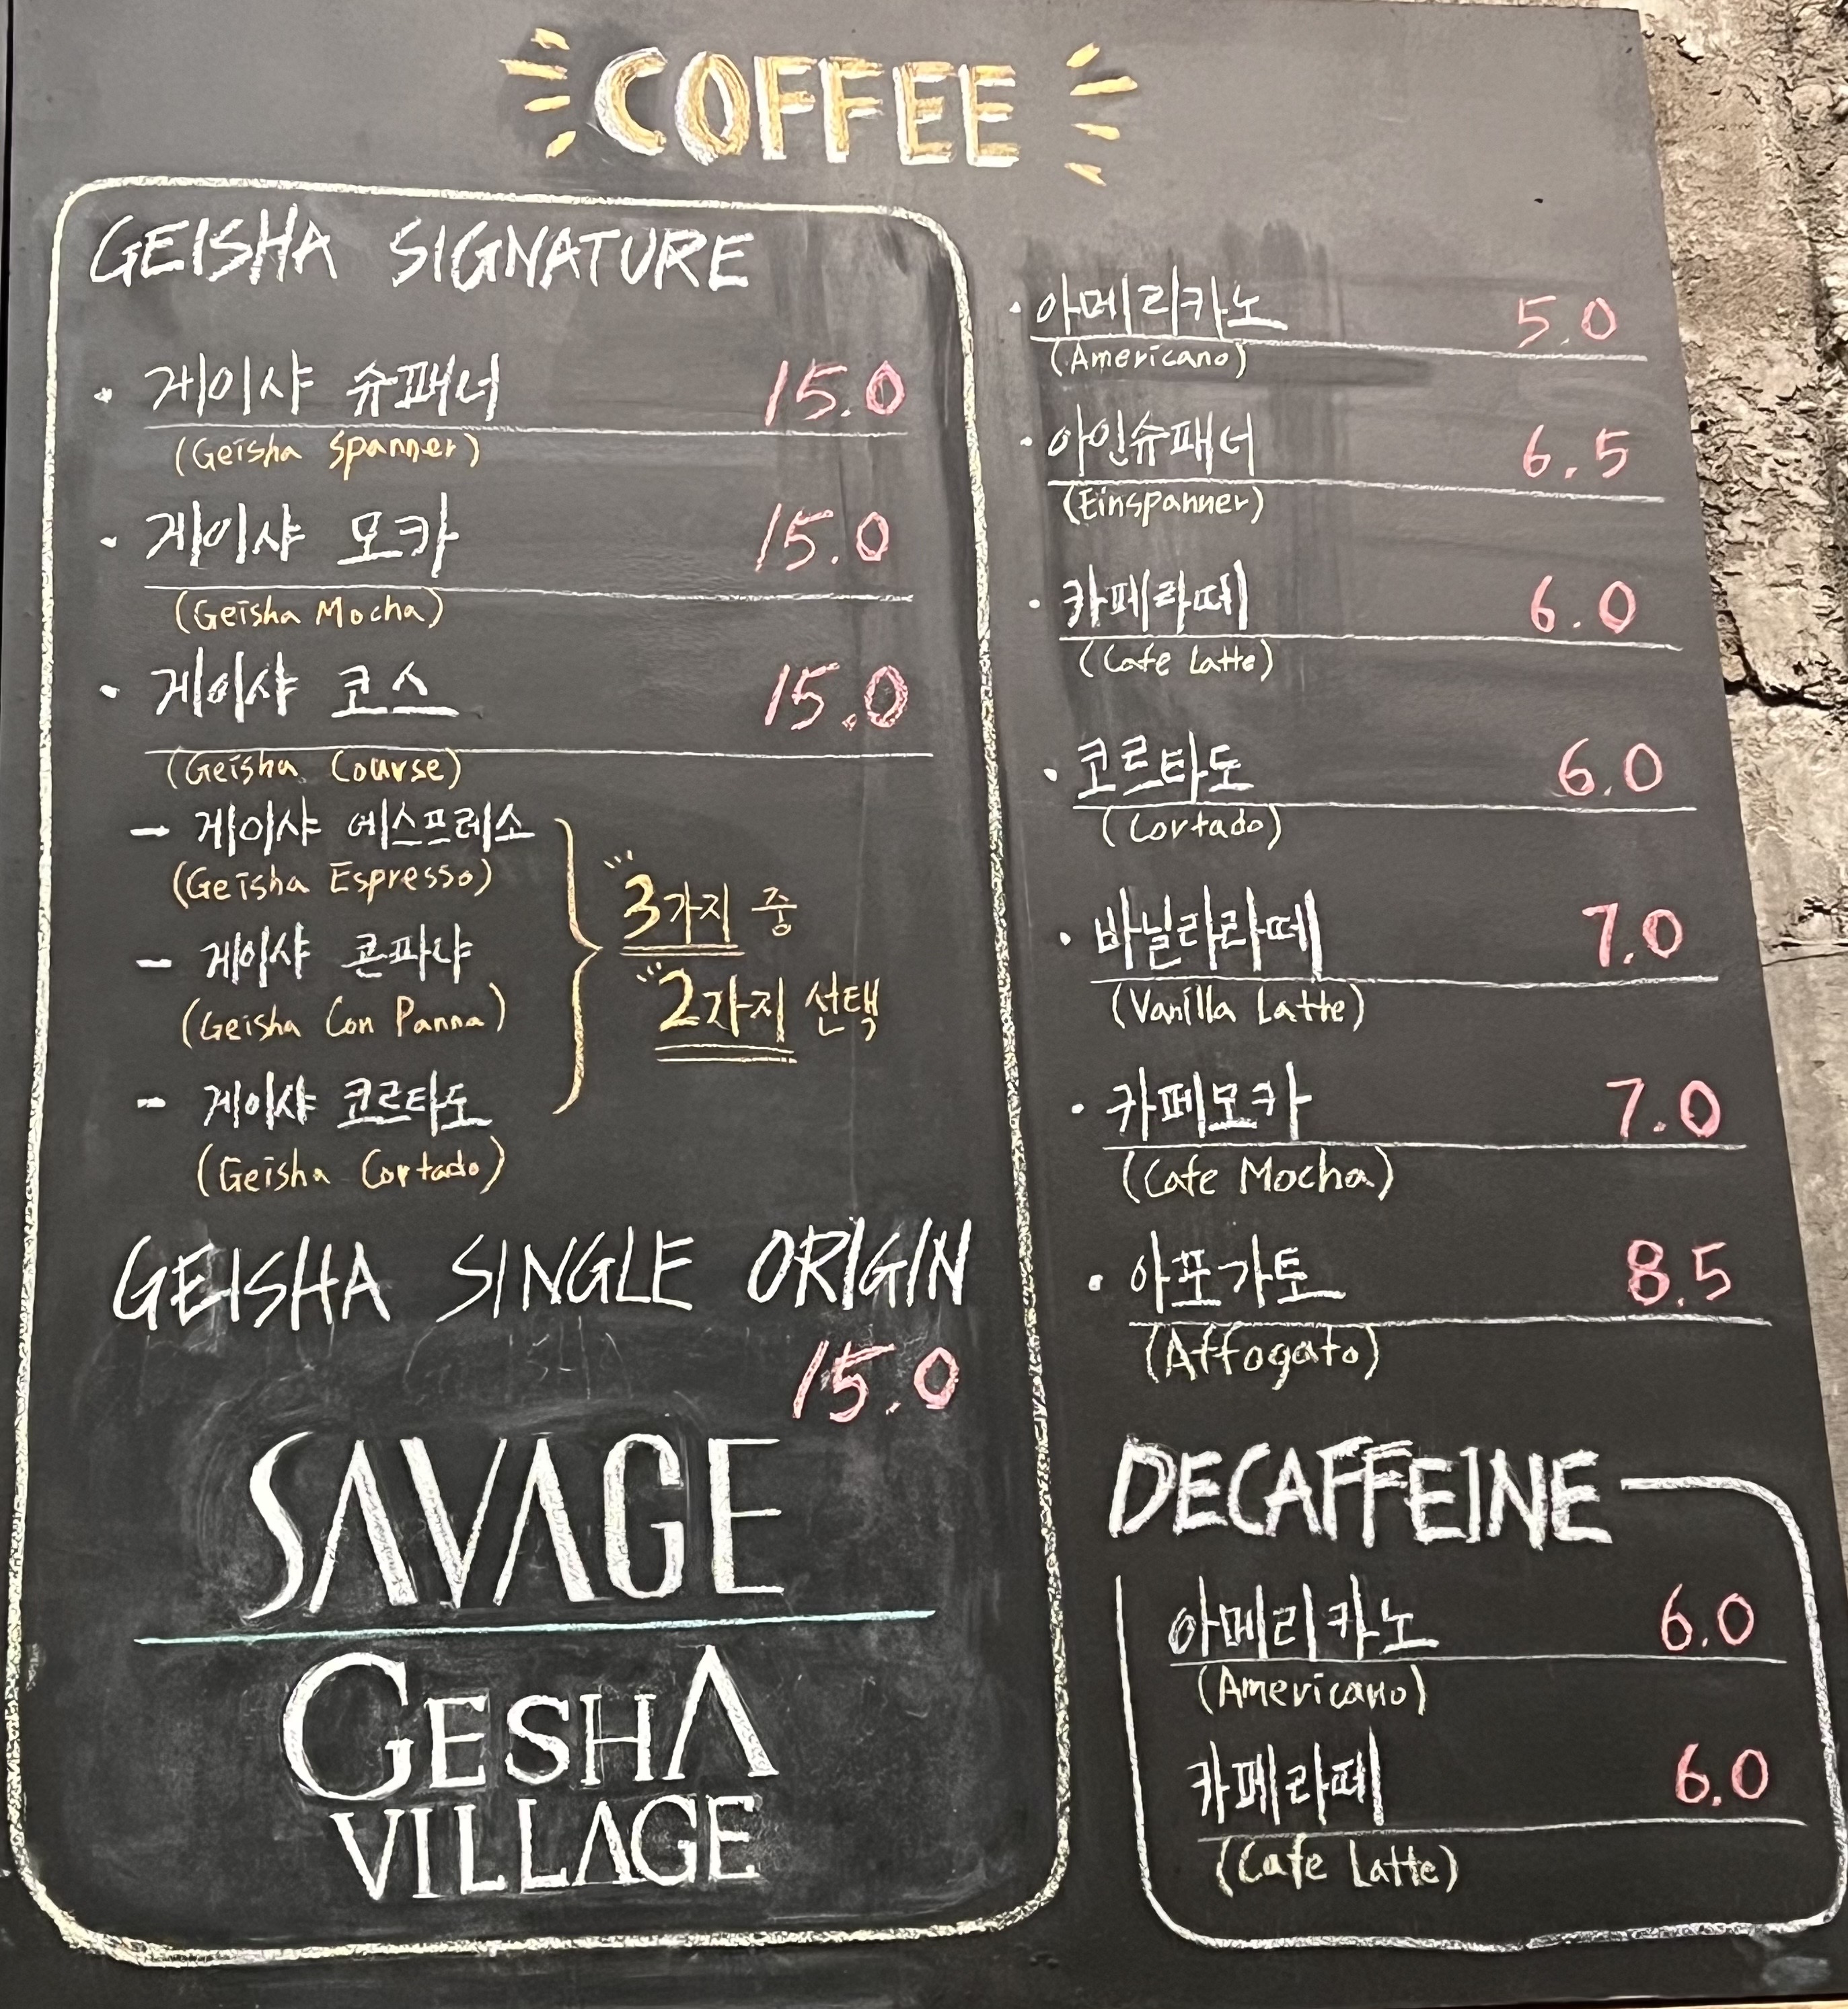 COFFEE
GEISHA SIGNATURE
· 게이샤 슈패너 15.0
(Geisha Spanner)
· 게이샤 모카 15.0
(Geisha Mocha)
· 게이샤 코스 15.0
(Geisha Course)
- 게이샤 에스프레소
(Geisha Espresso)
- 게이샤 콘파냐
(Geisha Con Panna)
- 게이샤 코르타도
(Geisha Cortado)
3가지 중
2가지 선택
GEISHA SINGLE ORIGIN
15.0
SAVAGE
GESHA
VILLAGE
· 아메리카노 5.0
(Americano)
· 아인슈패너 6.5
(Einspanner)
· 카페라떼 6.0
(Cafe Latte)
· 코르타도 6.0
(Cortado)
· 바닐라라떼 7.0
(Vanilla Latte)
· 카페모카 7.0
(Cafe Mocha)
· 아포가토 8.5
(Affogato)
DECAFFEINE
아메리카노 6.0
(Americano)
카페라떼 6.0
(Cafe Latte)